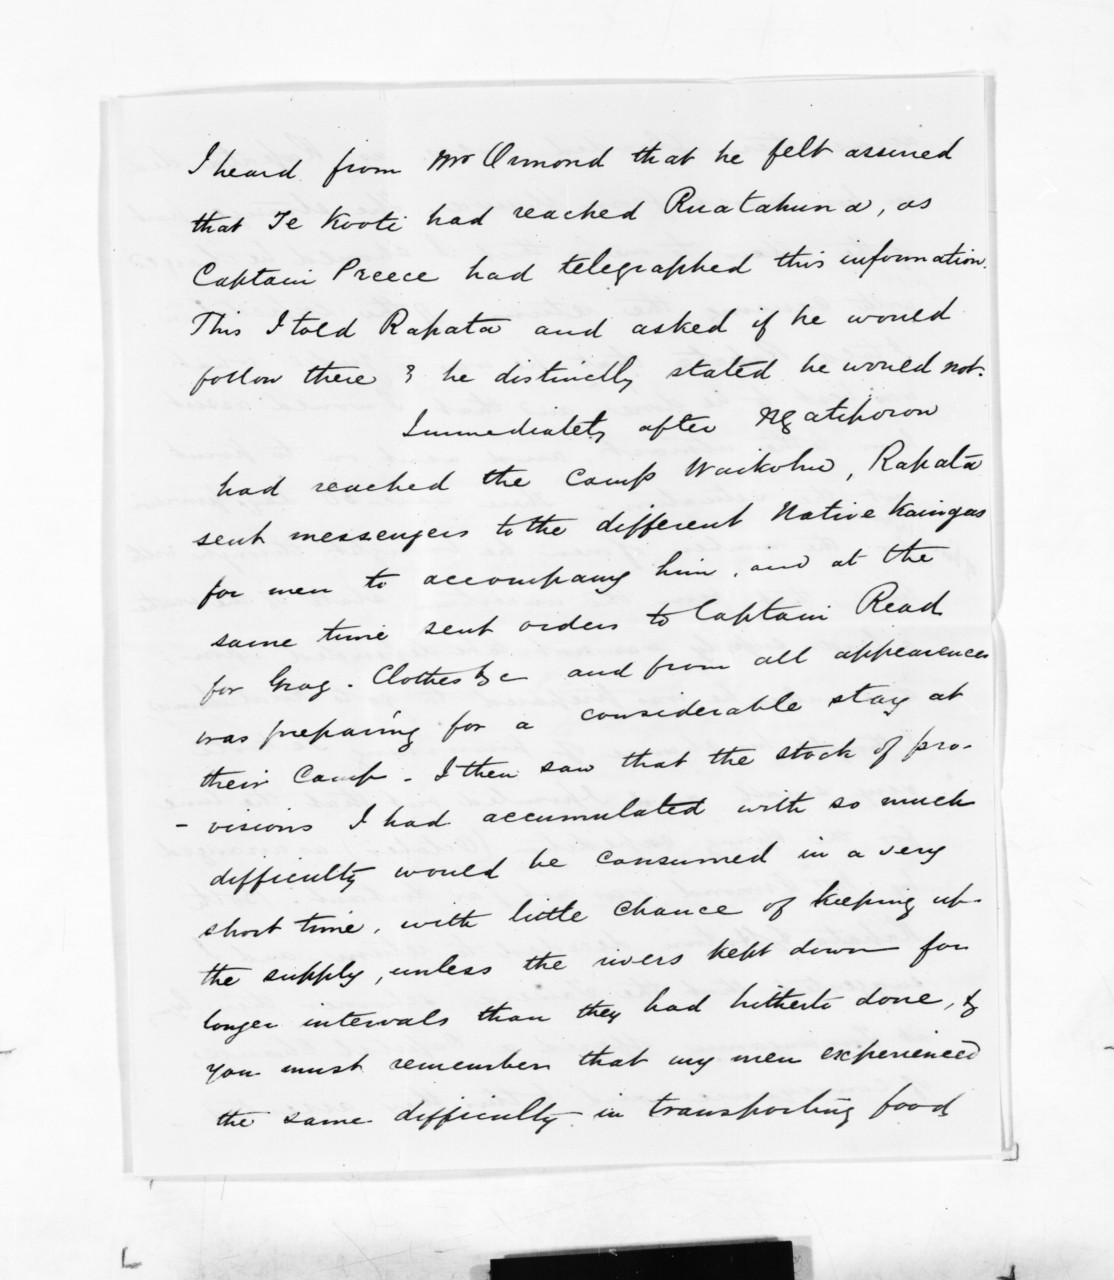 I heard from Mr Ormond that he felt assured
that Te Kooti had reached Ruatahuna, as
Captain Preece had telegraphed this information.
This I told Rapata and asked if he would
follow there & he distinctly stated he would not.
Immediately after Ngatiporou
had reached the Camp Waikohu, Rapata
sent messengers to the different Native Kaingas
for men to accompany him, and at the
same time sent orders to Captain Read
for Grog. Clothes &c and from all appearences
was preparing for a considerable stay at
their Camp. I then saw that the stock of pro-
- visions I had accumulated with so much
difficulty would be consumed in a very
short time, with little chance of keeping up
the supply, unless the rivers kept down for
longer intervals than they had hitherto done, &
you must remember that my men experienced
the same difficulty in transporting food